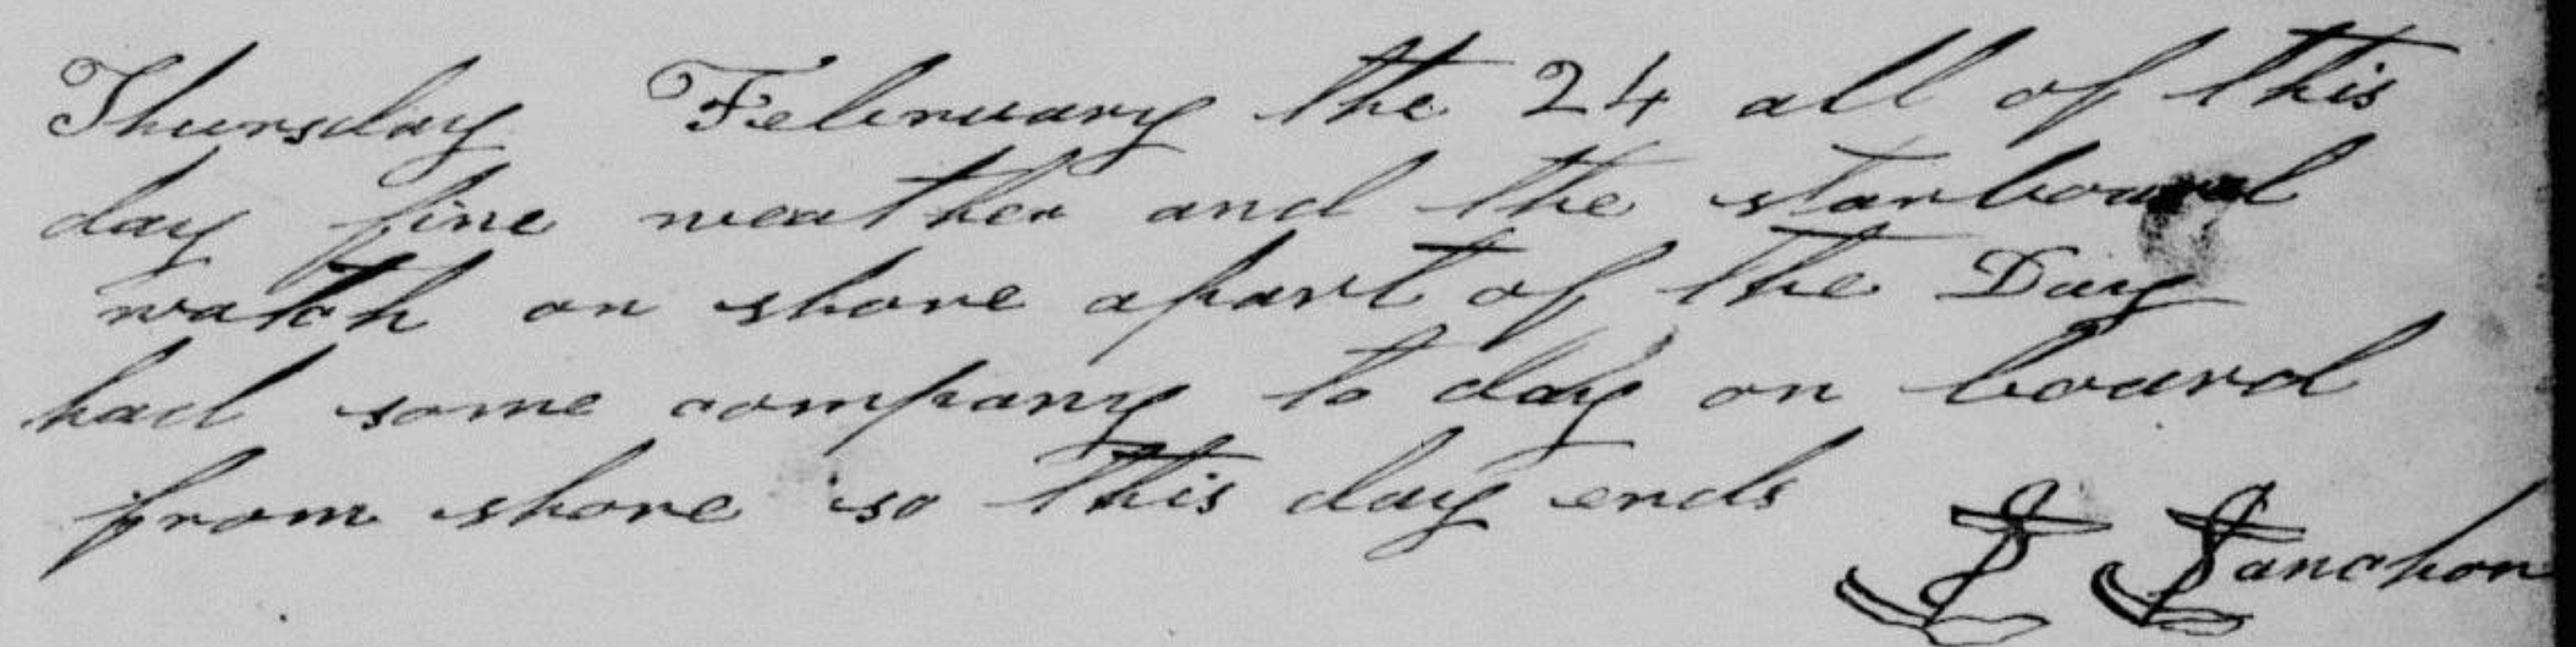 Thursday February the 24 all of this
day fine weather and the starboard
watch on shore apart of the Day
had some company to day on board
from shore so this day ends
anchor